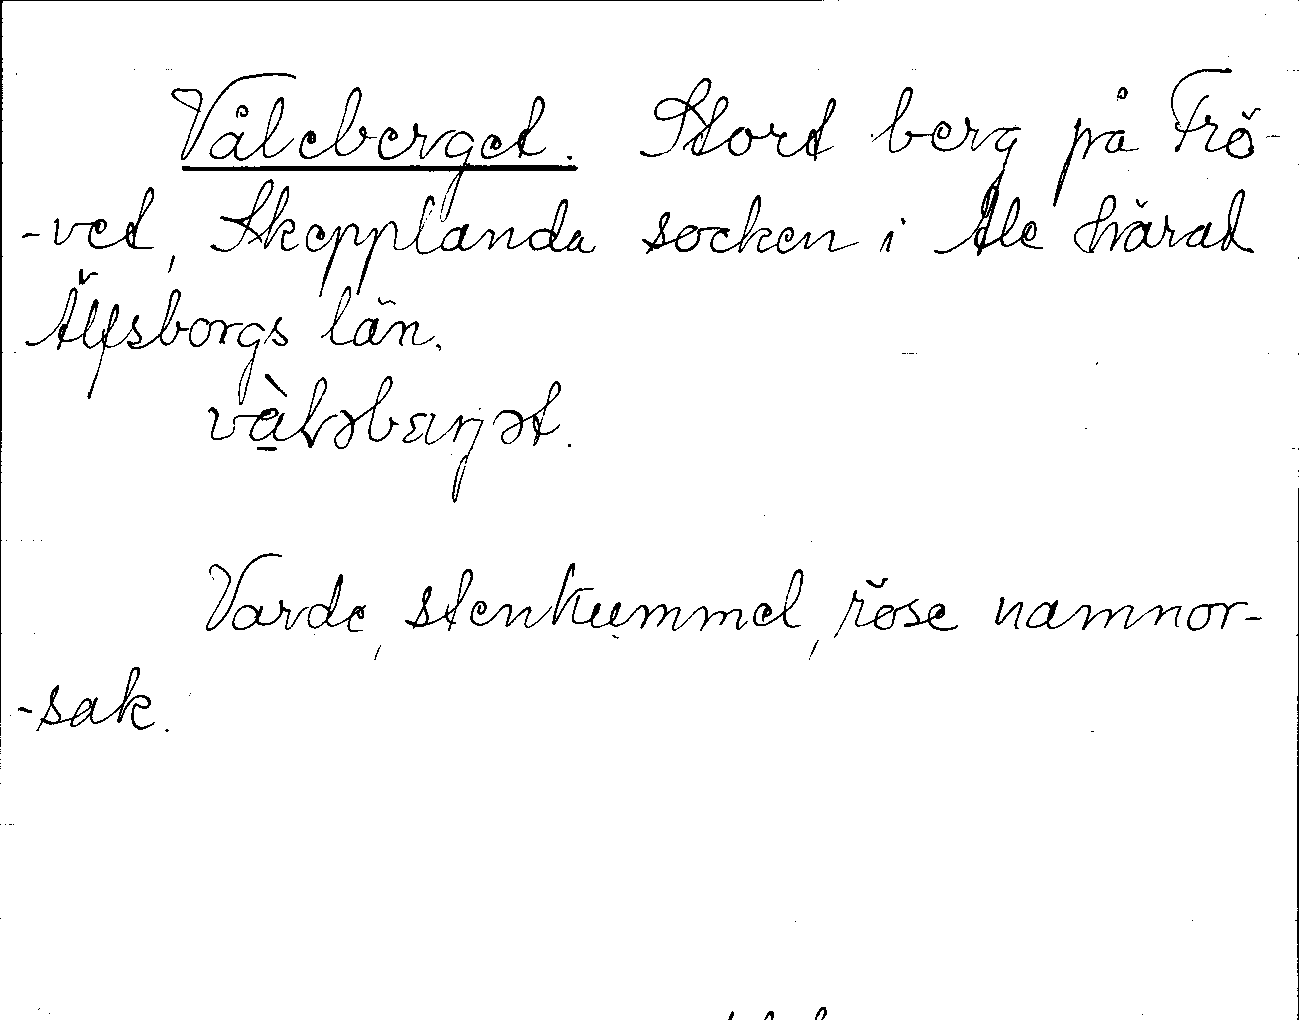 Våleberget. Stort berg på Frö-
-ved, Skepplanda socken i Ale härad
Älfsborgs län.
vàlәbærjәt.
Varde, stenkummel, röse namnor-
-sak.